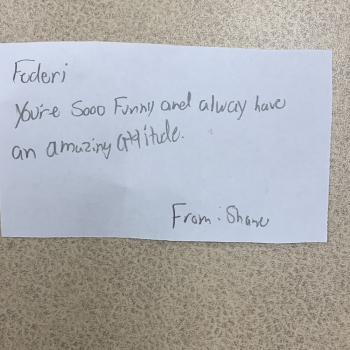 Federi
You're Sooo Funny and alway have
an amazing attitude.
From: Shane